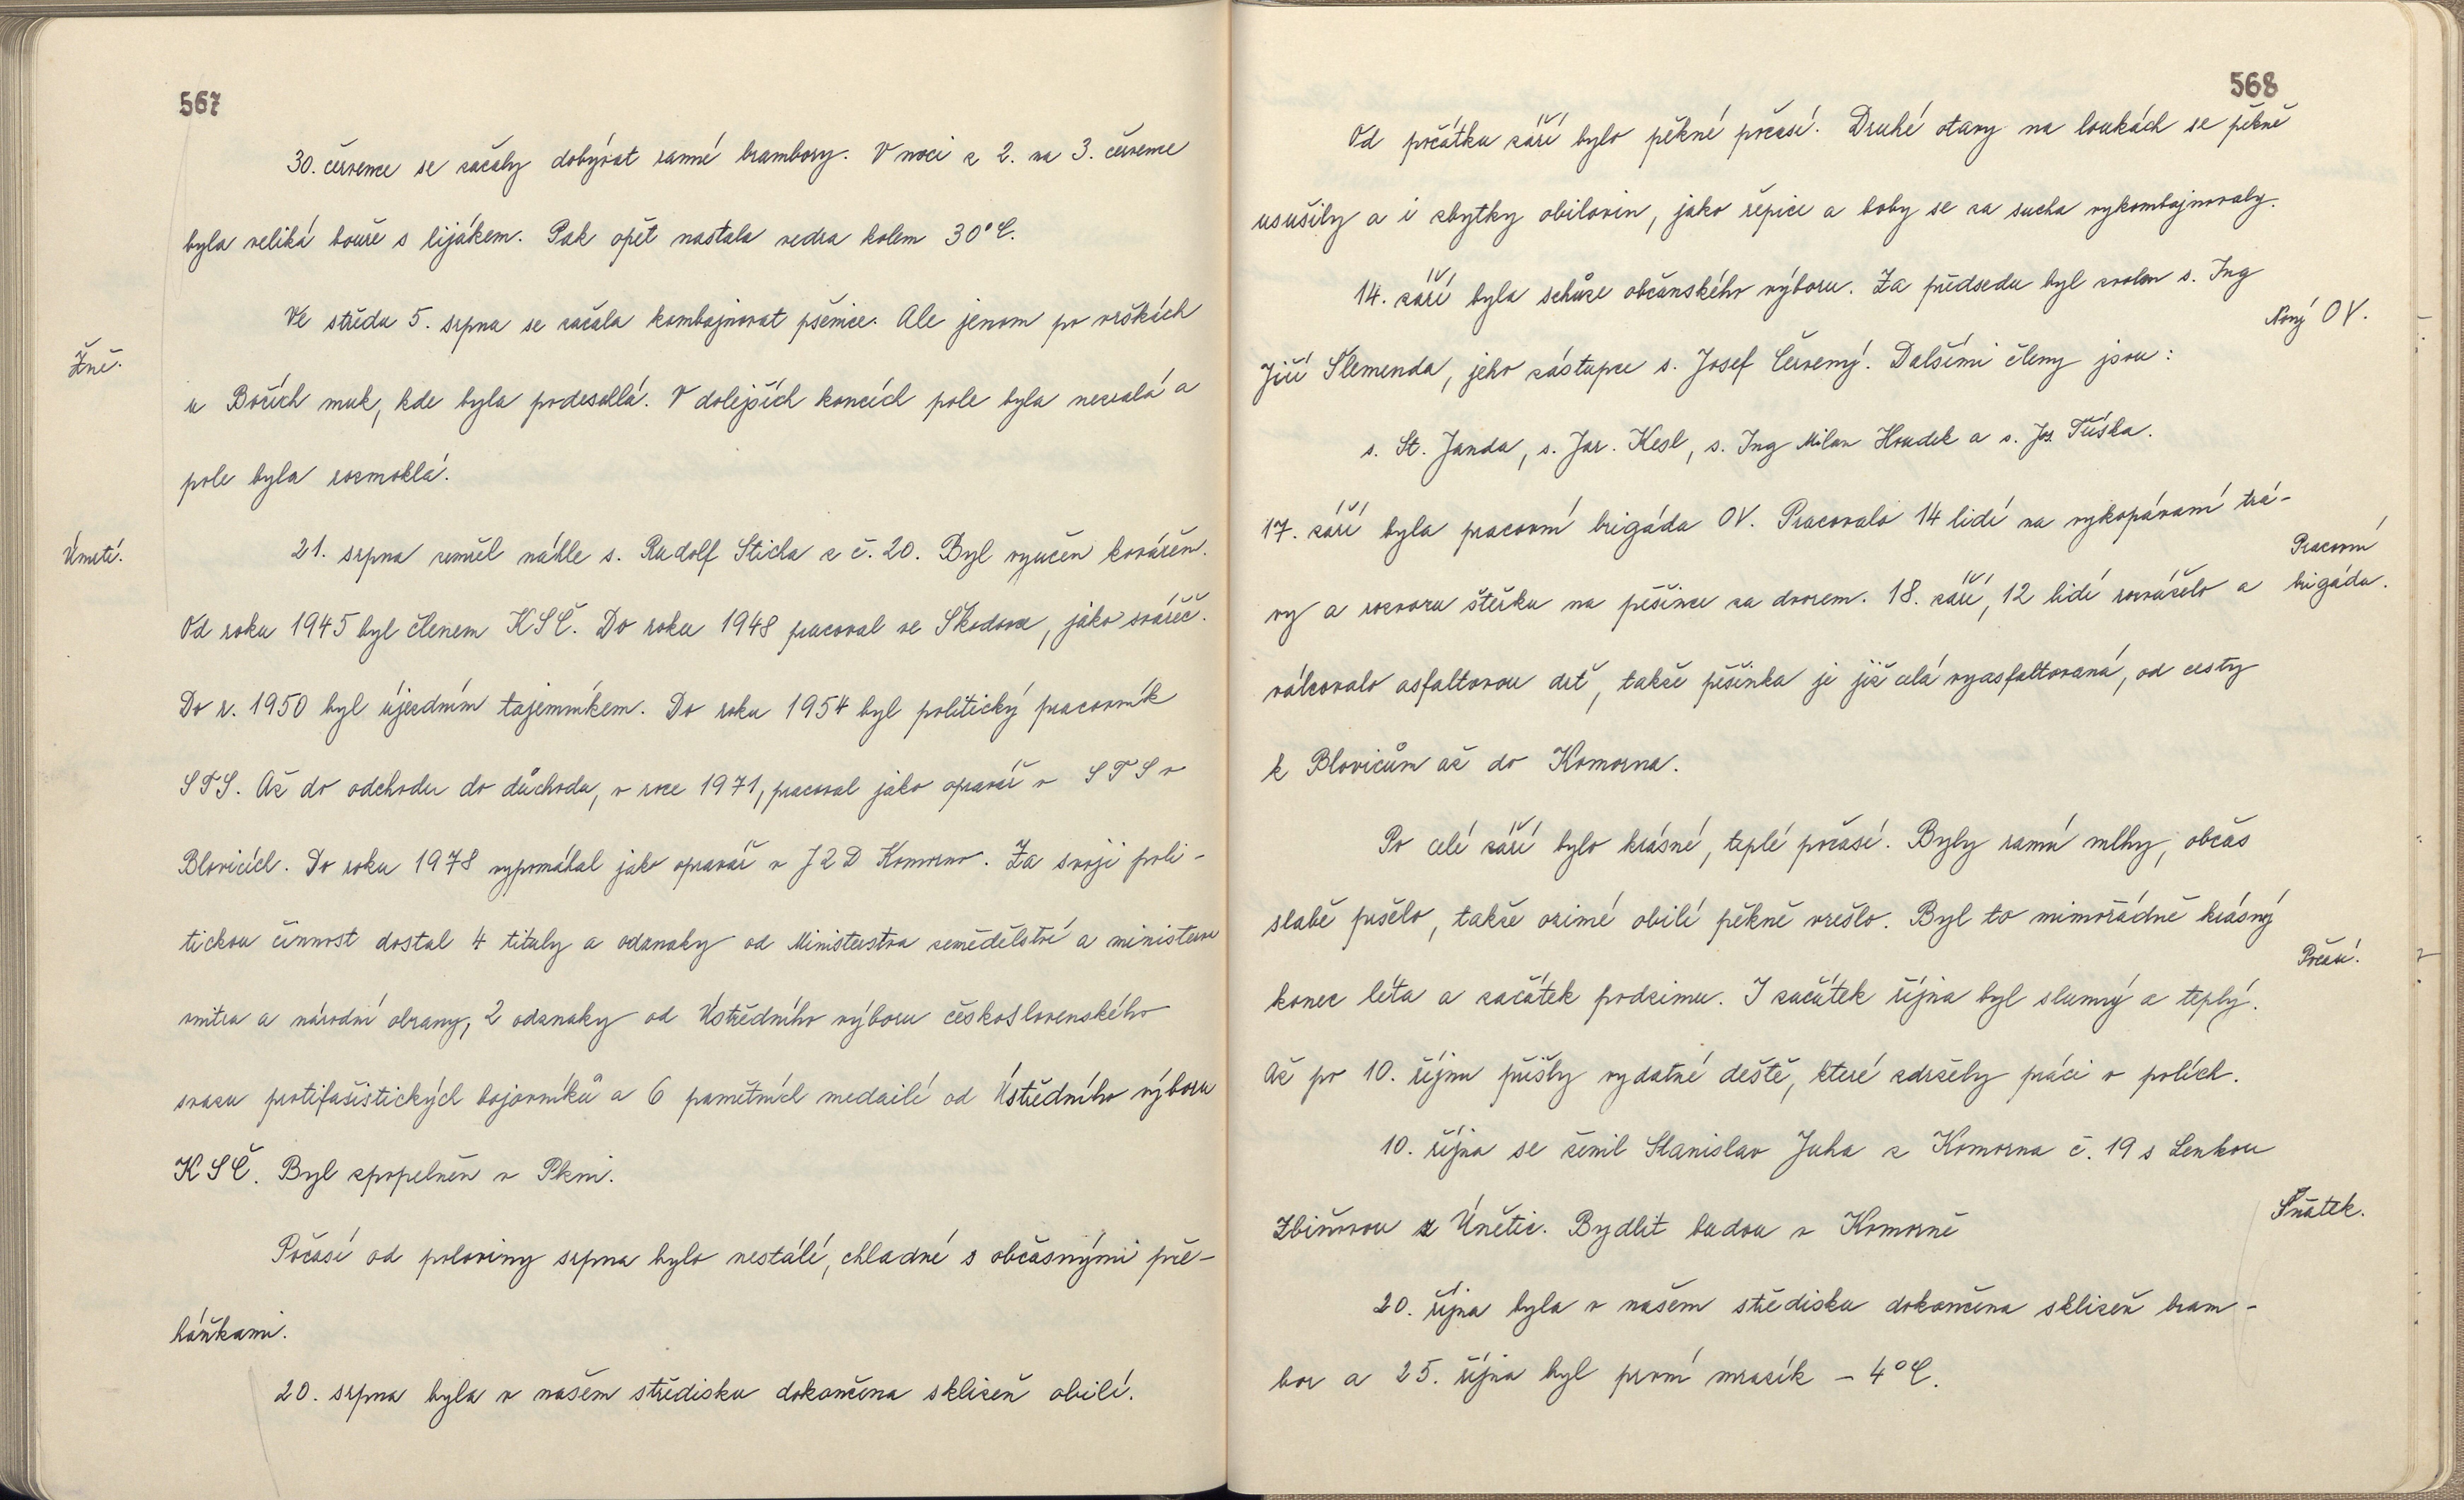 567
30. července se začaly dobývat ranné brambory. V noci z 2. na 3. července
byla veliká bouře s lijákem. Pak opět nastala vedra kolem 30°C.
Ve středu 5. srpna se začala kombajnovat pšenice. Ale jenom po vrškách
Žně.
u Božích muk, kde byla podeschlá. V dolejších koncích pole byla nezralá a
pole byla rozmoklá.
Úmrtí.
21. srpna zemřel náhle s. Rudolf Sticha z č. 20. Byl vyučen kovářem.
Od roku 1945 byl členem KSČ. Do roku 1948 pracoval ve Škodovce, jako svářeč.
Do r. 1950 byl újezdním tajemníkem. Do roku 1954 byl politický pracovník
STS. Až do odchodu do důchodu, v roce 1971, pracoval jako opravář v STS v
Blovicích. Do roku 1978 vypomáhal jako opravář v JZD Komorno. Za svoji poli-
tickou činnost dostal 4 tituly a odznaky od Ministerstva zemědělství a ministerva
vnitra a národní obrany, 2 odznaky od Ústředního výboru československého
svazu protifašistických bojovníků a 6 pamětních medailí od Ústředního výboru
KSČ. Byl zpopelněn v Plzni.
Počasí od poloviny srpna bylo nestálé, chladné s občasnými pře-
háňkami.
20. srpna byla v našem středisku dokončena sklizeň obilí.
568
Od počátku září bylo pěkné počasí. Druhé otavy na loukách se pěkně
usušily a i zbytky obilovin, jako řepice a boby se za sucha vykombajnovaly.
14. září byla schůze občanského výboru. Za předsedu byl zvolen s. Ing
Nový OV.
Jiří Šlemenda, jeho zástupce s. Josef Červený. Dalšími členy jsou:
s. St. Janda, s. Jar. Kesl, s. Ing Milan Houdek a s. Jos. Tříska.
17. září byla pracovní brigáda OV. Pracovalo 14 lidí na vykopávaní trá-
Pracovní
vy a rozvozu štěrku na pěšince za dvorem. 18. září, 12 lidí rozváželo a
brigáda.
válcovalo asfaltovou drť, takže pěšinka je již celá vyasfaltovaná, od cesty
k Blovicům až do Komorna.
Po celé září bylo krásné, teplé počasí. Byly ranní mlhy, občas
slabě pršelo, takže ozimé obilí pěkně vzešlo. Byl to mimořádně krásný
Počasí.
konec léta a začátek podzimu. I začátek října byl slunný a teplý.
Až po 10. říjnu přišly vydatné deště, které zdržely práci v polích.
10. října se ženil Stanislav Juha z Komorna č. 19 s Lenkou
Sňatek.
Zbiňovou z Únětic. Bydlit budou v Komorně
20. října byla v našem středisku dokončena sklizeň bram-
bor a 25. října byl první mrazík - 4°C.